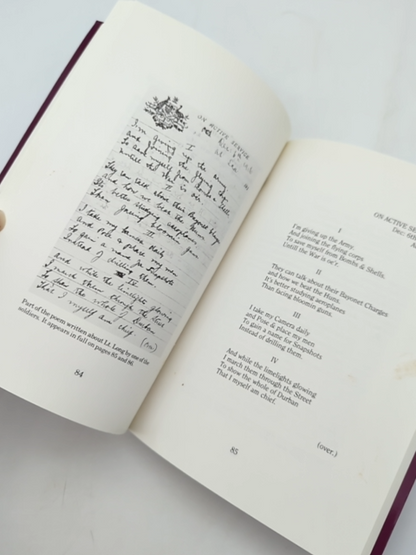 ON ACTIVE SERVICE
I
I'm giving up the army
and joining the flying corps
To save myself from
Untill the War is oer
II
They can talk about their Bayonet charges
and how we beat the Huns
It's better studying aeroplanes
Than facing bloomin guns
III
I take my Camera daily
and Pose & place my men
To gain a name for Snapshots
Instead of drilling them
IV
and while the limelights glowing
I march them through the Street
To show the whole of Durban
That I myself am chief
(over)
Part of the poem written about Lt. Long by one of the
soldiers. It appears in full on pages 85 and 86.
84
ON ACTIVE
Dec:
I
I'm giving up the Army.
And joining the flying corps
To save myself from Bombs & Shells.
Untill the War is oe'r.
II
They can talk about their Bayonet Charges
and how we beat the Huns.
It's better studying aeroplanes
Than facing bloomin guns.
III
I take my Camera daily
and Pose & place my men
To gain a name for Snapshots
Instead of drilling them.
IV
And while the limelights glowing
I march them through the Street
To show the whole of Durban
That I myself am chief.
(over.)
85